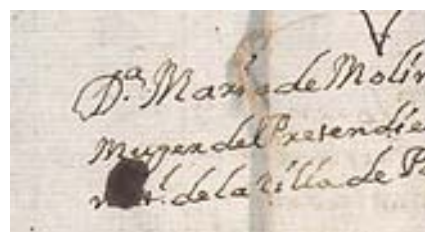 D.ª Maria de Molin
Muger del Pretendie
de la Villa de